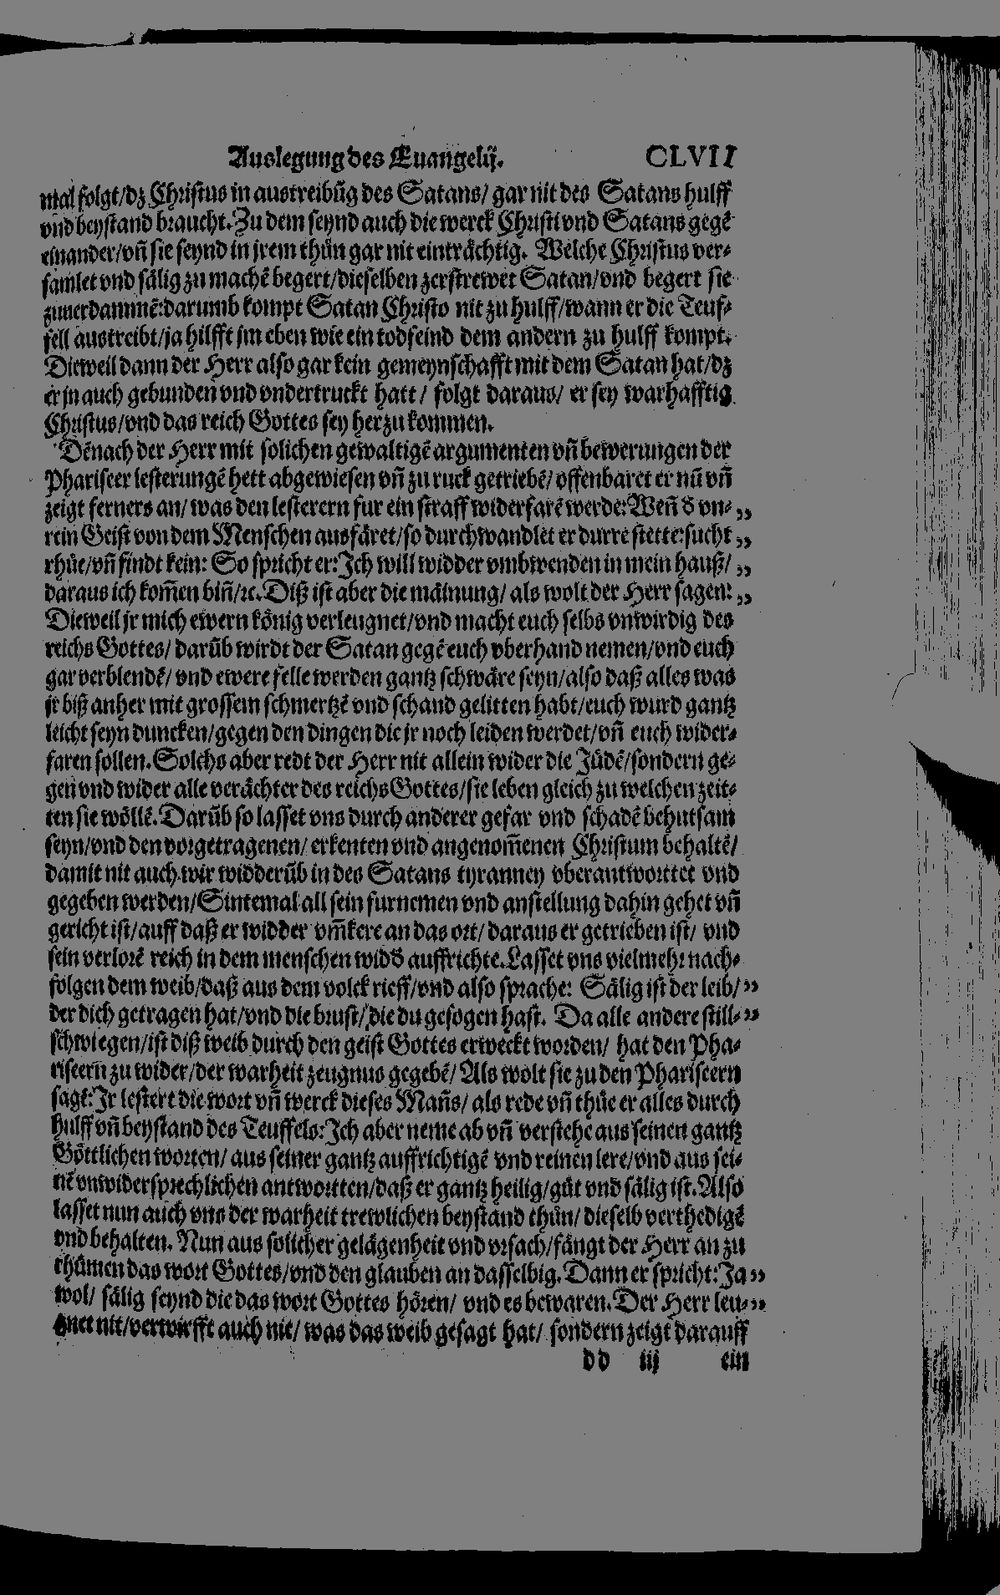 Auslegung des Euangelij. CLVII
mal folgt/dz Christus in austreibũg des Satans/ gar nit des Satans hulff
vnd beystand braucht. Zu dem seynd auch die werck Christi vnd Satans gegẽ
einander/vñ sie seynd in jrem thůn gar nit einträchtig. Welche Christus ver-
samlet vnd sälig zu machẽ begert/dieselben zerstrewet Satan/vnd begert sie
zuuerdammẽ:darumb kompt Satan Christo nit zu hulff/wann er die Teuf-
fell austreibt/ja hilfft jm eben wie ein todfeind dem andern zu hulff kompt.
Dieweil dann der Herr also gar kein gemeynschafft mit dem Satan hat/dz
er jn auch gebunden vnd vndertruckt hatt/ folgt daraus/ er sey warhafftig
Christus/vnd das reich Gottes sey herzu kommen.
Dẽnach der Herr mit solichen gewaltigẽ argumenten vñ bewerungen der
Phariseer lesterungẽ hett abgewiesen vñ zu ruck getriebẽ/offenbaret er nũ vñ
zeigt ferners an/ was den lesterern fur ein straff widerfarẽ werde:Weñ d vn- „
rein Geist von dem Menschen ausfäret/so durchwandlet er durre stette:sucht „
rhůe/vñ findt kein: So spricht er:Jch will widder vmbwenden in mein hauß/ „
daraus ich kom̃en biñ/ꝛc. Diß ist aber die mäinung/ als wolt der Herr sagen: „
Dieweil jr mich ewern könig verleugnet/vnd macht euch selbs vnwirdig des
reichs Gottes/ darũb wirdt der Satan gegẽ euch vberhand nemen/vnd euch
gar verblendẽ/ vnd ewere felle werden gantz schwäre seyn/also daß alles was
jr biß anher mit grossem schmertzẽ vnd schand gelitten habt/euch wurd gantz
leicht seyn duncken/gegen den dingen die jr noch leiden werdet/vñ euch wider-
faren sollen. Solchs aber redt der Herr nit allein wider die Jüdẽ/sondern ge-
gen vnd wider alle verächter des reichs Gottes/sie leben gleich zu welchen zeit-
ten sie wöllẽ. Darũb so lasset vns durch anderer gefar vnd schadẽ behutsam
seyn/vnd den vorgetragenen/ erkenten vnd angenom̃enen Christum behaltẽ/
damit nit auch wir widderũb in des Satans tyranney vberantworttet vnd
gegeben werden/Sintemal all sein furnemen vnd anstellung dahin gehet vñ
gericht ist/auff daß er widder vm̃kere an das ort/ daraus er getrieben ist/ vnd
sein verlorẽ reich in dem menschen widd auffrichte. Lasset vns vielmehr nach-
folgen dem weib/daß aus dem volck rieff/vnd also sprache: Sälig ist der leib/ „
der dich getragen hat/vnd die brust/die du gesogen hast. Da alle andere still- „
schwiegen/ist diß weib durch den geist Gottes erweckt worden/ hat den Pha-
riseern zu wider/der warheit zeugnus gegebẽ/ Als wolt sie zu den Phariseern
sagẽ:Jr lestert die wort vñ werck dieses Mañs/ als rede vñ thüe er alles durch
hulff vñ beystand des Teuffels:Jch aber neme ab vñ verstehe aus seinen gantz
Göttlichen worten/ aus seiner gantz auffrichtigẽ vnd reinen lere/vnd aus sei-
nẽ vnwidersprechlichen antwortten/daß er gantz heilig/gůt vnd sälig ist. Also
lasset nun auch vns der warheit trewlichen beystand thůn/ dieselb verthedigẽ
vnd behalten. Nun aus solicher gelägenheit vnd vrsach/fängt der Herr an zu
rhümen das wort Gottes/vnd den glauben an dasselbig. Dann er spricht:Ja „
wol/ sälig seynd die das wort Gottes hören/ vnd es bewaren. Der Herr leu- „
gnet nit/verwirfft auch nit/ was das weib gesagt hat/ sondern zeigt darauff
dd iij ein